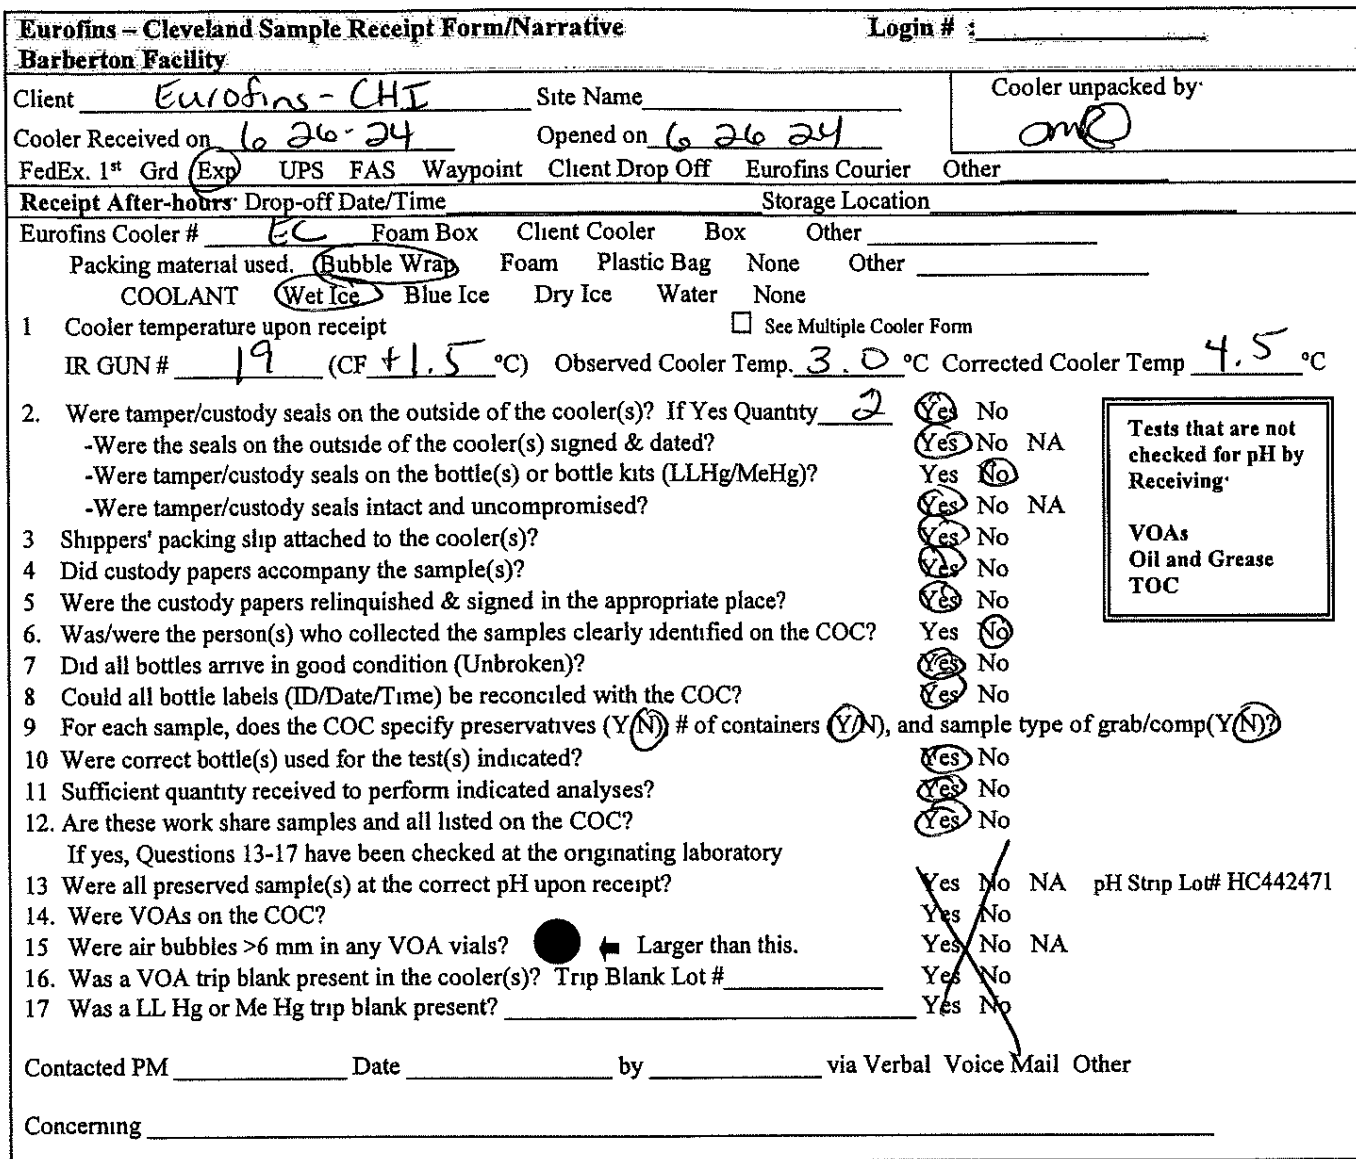 Eurofins – Cleveland Sample Receipt Form/Narrative Login # :
Barberton Facility
Client Eurofins - CHI Site Name Cooler unpacked by:
Cooler Received on 6 26-24 Opened on 6 26 24
FedEx. 1st Grd Exp UPS FAS Waypoint Client Drop Off Eurofins Courier Other
Receipt After-hours: Drop-off Date/Time Storage Location
Eurofins Cooler # EC Foam Box Client Cooler Box Other
Packing material used. Bubble Wrap Foam Plastic Bag None Other
COOLANT Wet Ice Blue Ice Dry Ice Water None
1 Cooler temperature upon receipt ☐ See Multiple Cooler Form
IR GUN # 19 (CF +1.5 °C) Observed Cooler Temp. 3.0 °C Corrected Cooler Temp 4.5 °C
2. Were tamper/custody seals on the outside of the cooler(s)? If Yes Quantity 2 Yes No
-Were the seals on the outside of the cooler(s) signed & dated? Yes No NA
-Were tamper/custody seals on the bottle(s) or bottle kits (LLHg/MeHg)? Yes No
-Were tamper/custody seals intact and uncompromised? Yes No NA
3 Shippers' packing slip attached to the cooler(s)? Yes No
4 Did custody papers accompany the sample(s)? Yes No
5 Were the custody papers relinquished & signed in the appropriate place? Yes No
6. Was/were the person(s) who collected the samples clearly identified on the COC? Yes No
7 Did all bottles arrive in good condition (Unbroken)? Yes No
8 Could all bottle labels (ID/Date/Time) be reconciled with the COC? Yes No
9 For each sample, does the COC specify preservatives (Y/N) # of containers (Y/N), and sample type of grab/comp(Y/N)?
10 Were correct bottle(s) used for the test(s) indicated? Yes No
11 Sufficient quantity received to perform indicated analyses? Yes No
12. Are these work share samples and all listed on the COC? Yes No
If yes, Questions 13-17 have been checked at the originating laboratory
13 Were all preserved sample(s) at the correct pH upon receipt? Yes No NA pH Strip Lot# HC442471
14. Were VOAs on the COC? Yes No
15 Were air bubbles >6 mm in any VOA vials? Larger than this. Yes No NA
16. Was a VOA trip blank present in the cooler(s)? Trip Blank Lot # Yes No
17 Was a LL Hg or Me Hg trip blank present? Yes No
Tests that are not
checked for pH by
Receiving:
VOAs
Oil and Grease
TOC
Contacted PM Date by via Verbal Voice Mail Other
Concerning